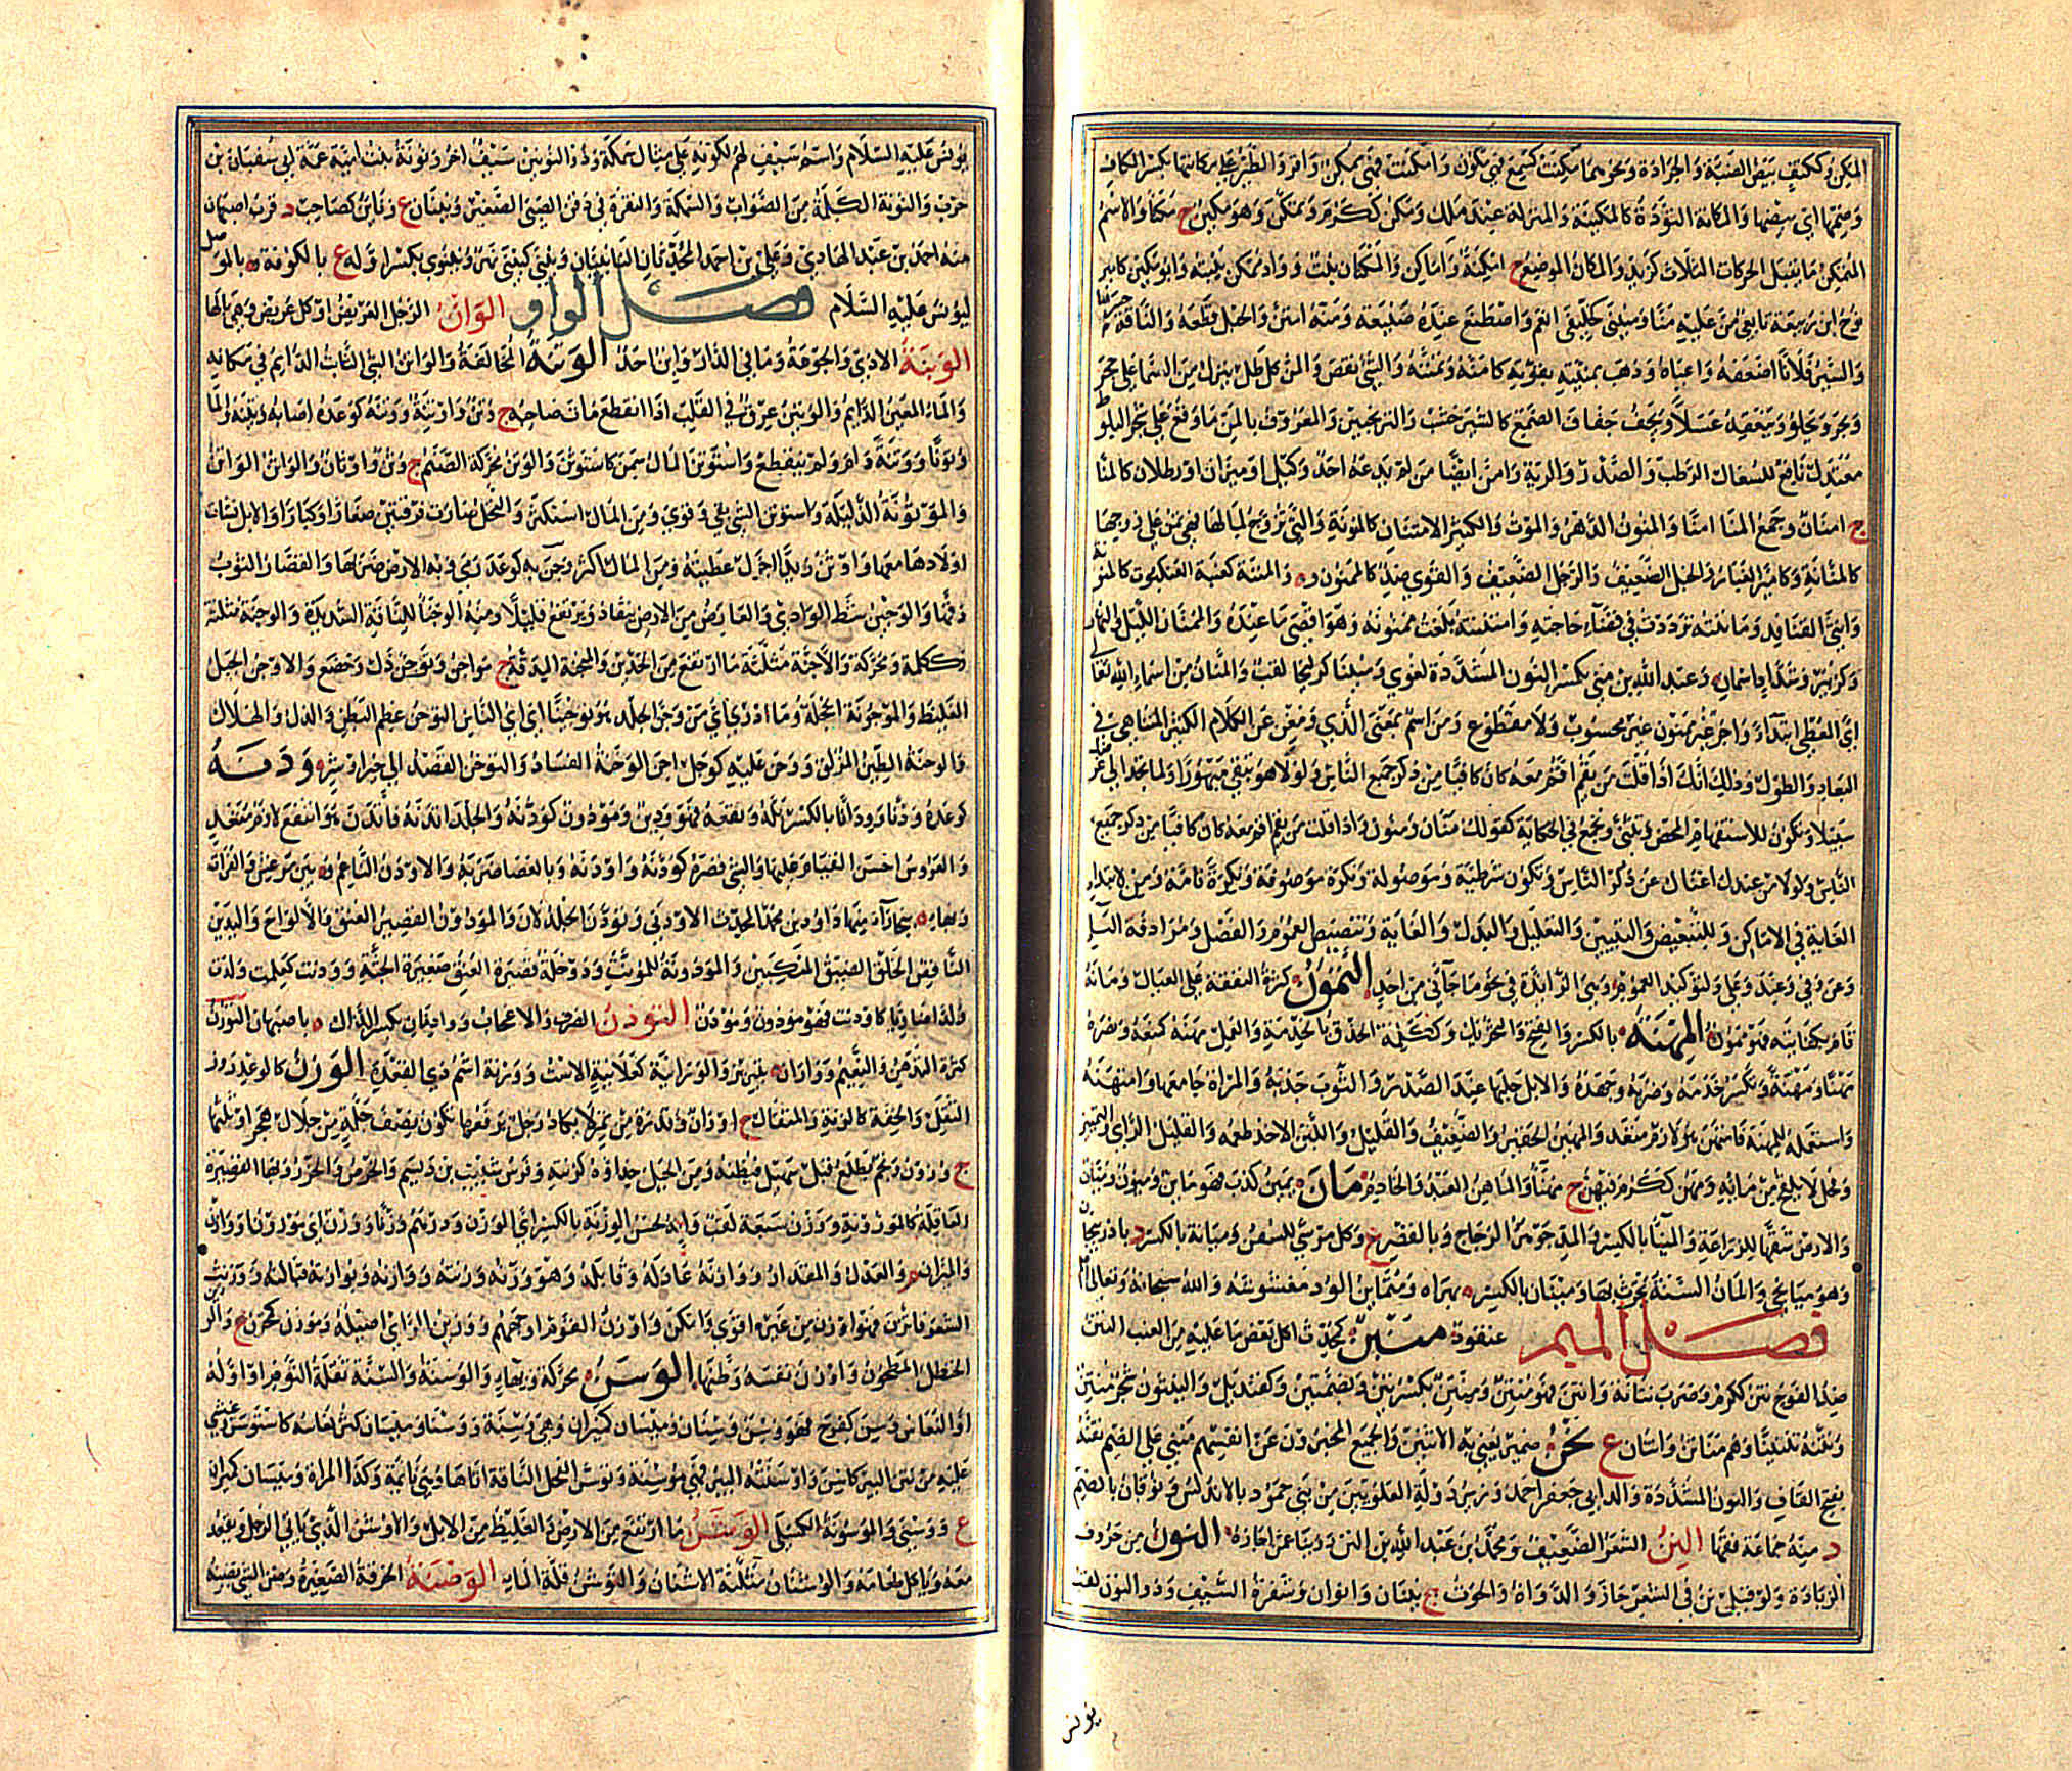 المكن وككتف بيض الضبة والجرادة ونحوهما مكنت كسمع فهي مكون وامكنت فهي ممكن واقروا الطير على مكناتها بكسر الكاف
وضمها اي بيضها والمكانة التؤدة كالمكينة والمنزلة عند ملك ومكن ككرم وتمكن وهو مكين ج مكنا والاسم
المتمكن ما يقبل الحركات الثلاث كزيد والمكان الموضع ج امكنة واماكن والمكنان نبت وواد ممكن ينبته وابو مكين كامير
نوح ابن ربيعة تابعي من عليه منا ومنينى كخليفى انعم واصطنع عنده صنيعة ومنة امتن والحبل قطعه والناقة حسرها
والسير فلانا اضعفه واعياه وذهب بمنته بقوته كامنه وتمننه والشي نقص والمن كل طل ينزل من السما على حجر
وشجر ويحلو وينعقد عسلا ويجف جفاف الصمغ كالشير خشت والترنجبين والمعروف بالمن ما وقع على شجر البلوط
معتدل نافع للسعال الرطب والصدر والرية والمن ايضا من لم يدعه احد وكيل او ميزان او رطلان كالمنا
ج امنان وجمع المنا امنا والمنون الدهر والموت والكثير الامتنان كالمنونة والتي تزوج لمالها فهي تمن على زوجها
كالمنانة وكامير الغبار والحبل الضعيف والرجل الضعيف والقوي ضد كالممنون والمننة كعنبة العنكبوت كالمنونة
وانثى القنافد ومانته ترددت في قضاء حاجته وامتننته بلغت ممنونه وهو اقصى ما عنده والممنان الليل والنهار
وكزبير وشداد اسمان وعبد الله بن مني بكسر النون المشددة لغوي ومنينا كزليخا لقب والمنان من اسماء الله تعالى
اي المعطي ابتداء واجر غير ممنون غير محسوب ولا مقطوع ومن اسم بمعنى الذي ومغن عن الكلام الكثير المتناهي في
البعاد والطول وذلك انك اذا قلت من يقم اقم معه كان كافيا من ذكر جميع الناس ولولا هو تبقى مبهورا ولما تجد الى غرضك
سبيلا وتكون للاستفهام المحض ويثنى ويجمع في الحكاية كقولك منان ومنون واذا قلت من يقم اقم معه كان كافيا من ذكر جميع
الناس ولولا من عندك اغناك عن ذكر الناس وتكون شرطية وموصولة ونكرة موصوفة ونكرة تامة ومن لابتداء
الغاية في الاماكن وللتبعيض والتبيين والتعليل والبدل والغاية وتنصيص العموم والفصل ومرادفة الباء
وعن وفي وعند وعلى ولتوكيد العموم وهي الزائدة في نحو ما جاءني من احد التمون كثرة النفقة على العيال ومانه
قام بكفايته فهو ممون المهنة بالكسر والفتح والتحريك وككلمة الحذق بالخدمة والعمل مهنه كمنعه ونصره
مهنا ومهنة وتكسر خدمه وضربه وجهده والابل حلبها عند الصدر والثوب جذبه والمراة جامعها وامتهنه
واستعمله للمهنة فامتهن هو لازم متعد والمهين الحقير والضعيف والقليل واللبن الاجن طعمه والقليل الراي والتمييز
وفحل لا يلقح من مائه ومهن ككرم فيهن ج مهنا والماهن العبد والخادم مان يمين كذب فهو ماين وميون وميان
والارض شقها للزراعة والمينا بالكسر والمد جوهر الزجاج وبالقصر ع وكل مرسى للسفن وميانة بالكسر د باذربيجان
وهو ميانجي والمان السنة يحرث بها وميانان بالكسر بهراه ومتماين الود مغشوشه والله سبحانه وتعالى اعلم
فصل الميم عنقود منتبن كحدث اكل بعض ما عليه من العنب النتن
ضد الفوح نتن ككرم وضرب نتانة وانتن فهو منتن ومنتن بكسرتين وبضمتين وكقنديل والنيتون شجر منتن
ونتنه تنتينا وهم مناتن وانتان ع نحن ضمير يعنى به الاثنين والجميع المخبرون عن انفسهم مبني على الضم نقنة
بفتح القاف والنون المشددة والد ابي جعفر احمد ونرس دولة العلويين من بني حمود بالاندلس ونوقان بالضم
د منه جماعة فقها النن الشعر الضعيف ومحمد بن عبد الله بن النن روينا عن اجازة النون من حروف
الزيادة ولو قيل في الشعر جاز والدواة والحوت ج نينان وانوان وشفرة السيف وذو النون لقب
يونس
يونس عليه السلام واسم سيف لهم لكونه على مثال سمكة وذو النونين سيف اخر ونونة بنت امية عمة ابي سفيان بن
حرب والنونة الكلمة من الصواب والسمكة والنقرة في ذقن الصبي الصغير ونينان ع ونائن كصاحب د قرب اصبهان
منه احمد بن عبد الهادي وعلي بن احمد المحدثان النائنيان ونينى كينى نهر ونينوى بكسر اوله ع بالكوفة و بالموصل
ليونس عليه السلام فصل الواو الوان الرجل العريض او كل عريض وهي بالها
الوبنة الاذى والجوعة وما في الدار وابن احد الوتنة المخالفة والواتن الشي الثابت الدائم في مكانه
والماء المعين الدايم والوتين عرق في القلب اذا انقطع مات صاحبه ج وتن واوتنة ووتنه كوعده اصاب وتينه والماء
وتونا ووتنة دام ولم ينقطع واستوتن المال سمن كاستوثن والوثن محركة الصنم ج وثن واوثان والواثن الواتن
والموثونة الذليلة واستوثن الشي بقي وقوي ومن المال استكثر والنحل صارت فرقتين صغارا وكبارا والابل نشات
اولادها معها واوثن زيدا اجزل عطيته ومن المال اكثر وجن به كوعد رمى وبه الارض ضربها والقصار الثوب
دقها والوجين شط الوادي والعارض من الارض ينقاد ويرتفع قليلا ومنه الوجنا للناقة الشديدة والوجنة مثلثة
وككلمة ومحركة والاجنة مثلثة ما ارتفع من الخدين والميجنة المدقة ج مواجن وتوجن ذل وخضع والاوجن الجبل
الغليظ والموجونة الخجلة وما ادري اي من وجن الجلد هو توجينا اي اي الناس التوحن عظم البطن والذل والهلاك
والوحنة الطين المزلق ووحن عليه كوجل احن الوخنة الفساد والتوخن القصد الى خير او شر ودنه
كوعده ودنا وودانا بالكسر بله ونقعه فهو ودين ومودون كودنه والجلد اتدنه فاتدن هو انتقع لازم متعد
والعروس احسن القيام عليها والشي قصره كودنه واودنه وبالعصا ضربه والاودن الناعم و بين مرعش والفرات
وبهاء ببخارا منها داود بن محمد المحدث الاودني وتودن الجلد لان والمودون القصير العنق والالواح واليدين
الناقص الخلق الضيق المنكبين والمودونة للمونث ودوخلة قصيرة العنق صغيرة الجثة وودنت كعلمت ولدت
ولدا ضاويا كاودنت فهو مودون ومودن التوذن الصرف والاعجاب وواذنان بكسر الذال باصبهان التورن
كثرة التدهن والتنعيم وواران بتبريز والورانية كعلانية الاست وورنة اسم ذي القعدة الوزن كالوعد روز
الثقل والخفة كالزنة والمثقال ج اوزان وفدرة من تمر لا يكاد رجل يرفعها تكون نصف جلة من جلال هجر او ثلثها
ج وزون ونجم يطلع قبل سهيل فيظنه ومن الجبل حذاؤه كزنته وفرس شبيب بن ديسم والخرص والحزر وبهاء القصيرة
العاقلة كالموزونة ووزن سبعة لقب وانه لحسن الوزنة بالكسر اي الوزن ودرهم وزنا ووزن اي موزونا ووازن
والميزان والعدل والمقدار ووازنه عادله وقابله وهو وزنه وزنته ووازنه وبوازنته قبالته ووزنت
الشعر فاتزن فهو اوزن من غيره اقوى وامكن واوزن القوم اوجههم ووزين الراي اصيله وموزن كمحسن ع والوزين
الحنظل المطحون واوزن نفسه وطنها الوسن محركة وبهاء والوسنة والسنة ثقلة النوم او اوله
او النعاس وسن كفرح فهو وسن وسنان وميسان كميزان وهي وسنة ووسنا وميسان كثر نعاسه كاستوسن وغشي
عليه من نتن البير كاسن واوسنته البير فهي موسنة وتوسن الفحل الناقة اتاها وهي نائمة وكذا المراة وميسان كميزان
ع ووسنى والموسونة الكسلى الوشن ما ارتفع من الارض والغليظ من الابل والاوشن الذي ياتي الرجل ويقعد
معه وياكل طعامه والوشنان مثلثة الاشنان والتوشن قلة الماء الوضنة الخرقة الصغيرة وضن الشي يضنه